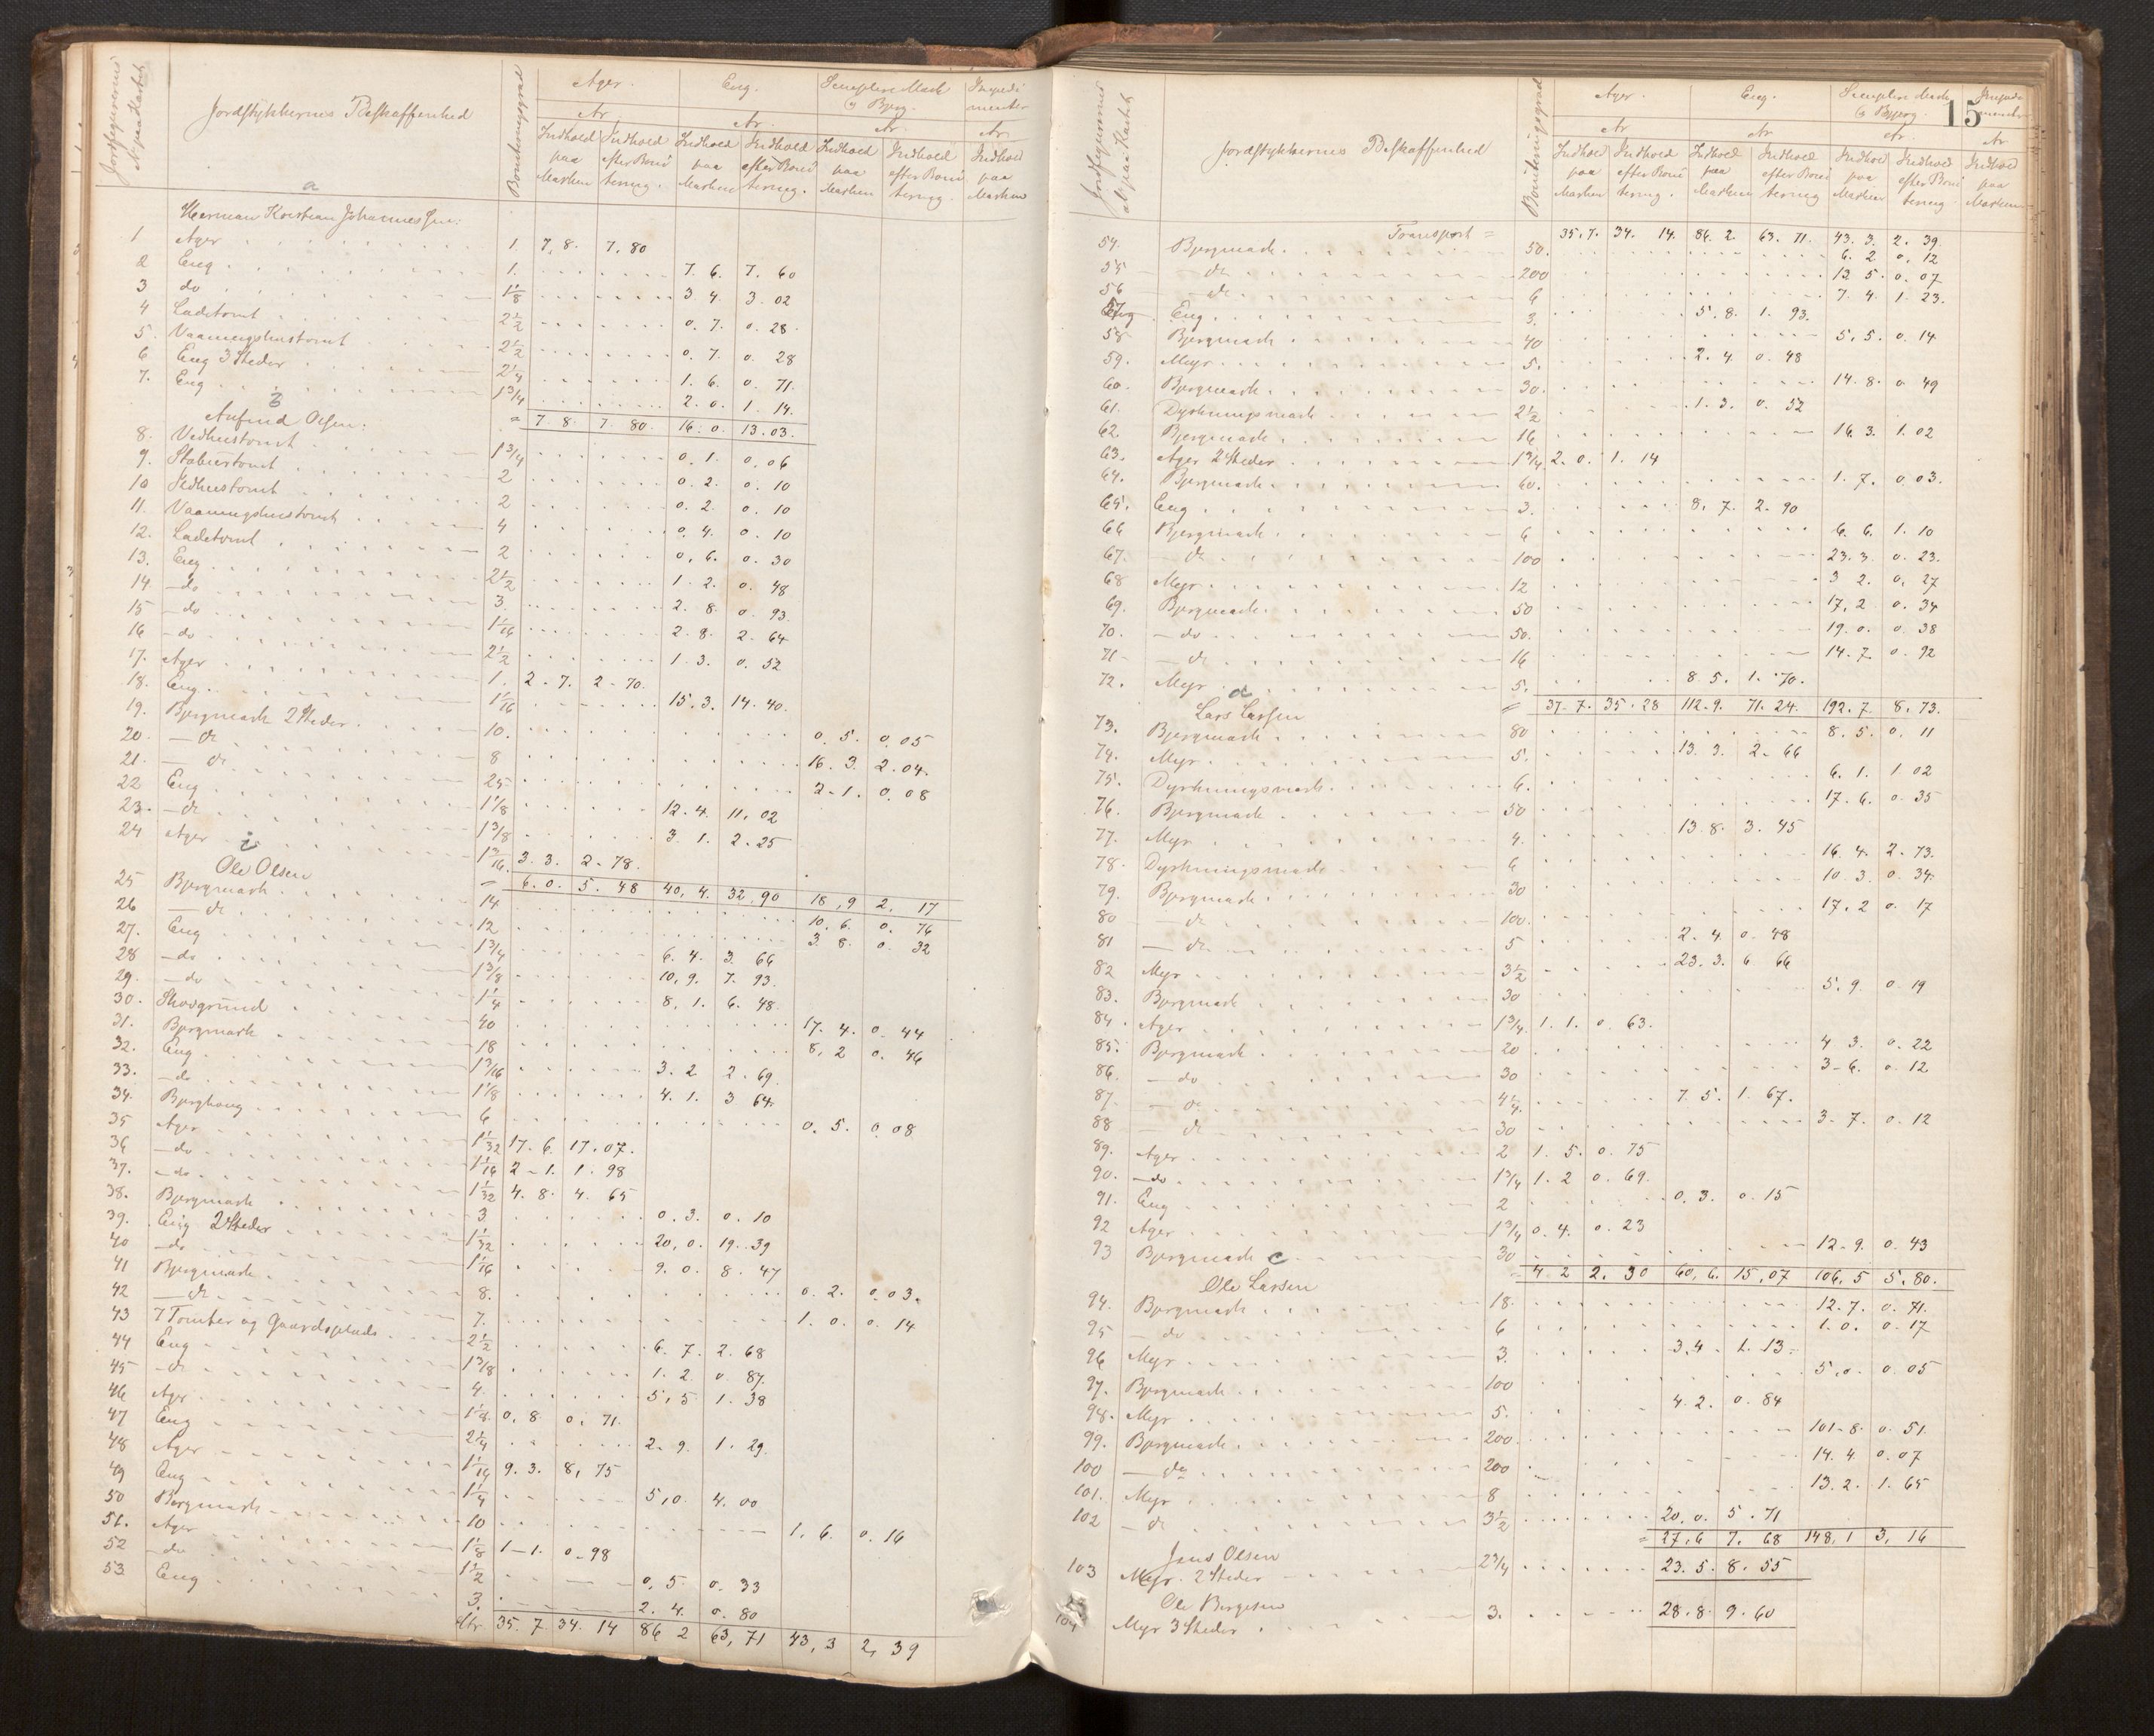 Jordfigurernes No paa Kartet | Jordstykkernes Beskaffenhed | Boniteringsgrad | Ager. | Eng. | Simplere Mark & Bjerg. | Impedimenter
Ar | Ar. | Ar. | Ar.
Indhold paa Marken | Indhold efter Bonitering. | Indhold paa Marken | Indhold efter Bonitering. | Indhold paa Marken | Indhold efter Bonitering. | Indhold paa Marken
a
Herman Kristian Johannessen:
1 Ager 1. 7. 8. 7. 80
2 Eng 1. 7. 6. 7. 60
3 do 1 1/8 3. 4. 3. 02
4 Ladetomt 2 1/2 0. 7. 0. 28
5. Vaaningshustomt 2 1/2 0. 7. 0. 28
6 Eng 3 Steder 2 1/4 1. 6. 0. 71.
7. Eng 1 3/4 2. 0. 1. 14.
= 7. 8. 7. 80. 16. 0. 13. 03.
b
Anfind Olsen:
8. Vedhustomt 1 3/4 0. 1. 0. 06
9. Staburstomt 2 0. 2. 0. 10
10 Ildhustomt 2 0. 2. 0. 10
11. Vaaningshustomt 4 0. 4. 0. 10
12. Ladetomt 2 0, 6. 0. 30
13. Eng 2 1/2 1. 2. 0. 48
14. do 3. 2. 8. 0. 93.
15 do 1 1/16 2. 8. 2. 64
16 do 2 1/2 1. 3. 0. 52
17. Ager 1. 2. 7. 2. 70.
18. Eng 1 1/16 15. 3. 14. 40.
19. Bjergmark 2 Steder 10. 0. 5. 0. 05
20. do 8 16. 3. 2. 04.
21. do 25 2. 1. 0. 08
22 Eng 1 1/8 12. 4. 11, 02
23. do 1 3/8 3. 1. 2. 25
24 Ager 1 3/16. 3. 3. 2. 78.
= 6. 0. 5. 48 40, 4. 32. 90 18, 9 2. 17
Ole Olsen
25 Bjergmark 14 10. 6. 0. 76
26 do 12 3. 8. 0. 32
27. Eng 1 3/4 6. 4. 3. 66
28 do 1 3/8 10, 9. 7. 93.
29. do 1 1/4 8, 1. 6. 48.
30. Skovgrund 40 17. 4. 0. 44
31. Bjergmark 18 8, 2 0. 46
32. Eng 1 3/16 3. 2 2. 69.
33. do 1 1/8 4. 1. 3 64.
34. Berghaug 6 0. 5. 0. 08
35 Ager 1 1/32 17. 6. 17. 07.
36 do 1 1/16 2 - 1. 1. 98
37. do 1 1/32 4. 8. 4. 65
38. Bjergmark 3 0. 3. 0. 10
39. Eng 2 Steder 1 1/32 20, 0. 19. 39
40 do 1 1/16 9. 0. 8. 47
41 Bjergmark 8. 0. 2. 0. 03.
42 do 7. 1. 0. 0. 14
43 7 Tomter og Gaardsplads 2 1/2 6. 7. 2. 68
44 Eng 1 3/8 1. 2. 0. 87.
45 do 4. 5, 5 1. 38
46 Ager 1 1/8 0, 8. 0, 71.
47 Eng 2 1/4 2. 9. 1. 29.
48 Ager 1 1/16 9. 3. 8, 75
49 Eng 1 1/4 5, 0. 4. 00
50 Bergmark 10 1, 6. 0. 16
51. Ager 1 1/8 1 - 1. 0. 98
52 do 1 1/2 0, 5. 0. 33
53 Eng 3. 2. 4. 0. 80
35. 7 34. 14 86 2 63, 71 43, 3 2, 39
15
Jordfigurernes No paa Kartet | Jordstykkernes Beskaffenhed | Boniteringsgrad | Ager. | Eng. | Simplere Mark & Bjerg. | Impedimenter
Ar | Ar | Ar. | Ar
Indhold paa Marken | Indhold efter Bonitering. | Indhold paa Marken | Indhold efter Bonitering | Indhold paa Marken | Indhold efter Bonitering. | Indhold paa Marken
Transport = 35, 7. 34. 14. 86. 2. 63. 71. 43. 3. 2. 39
54. Bjergmark 50. 6. 2 0. 12
55 do 200 12 5. 0. 07
56 do 6 7. 4. 1. 23.
57 Eng 3. 5. 8. 1. 93.
58 Bjergmark 40 5, 5. 0. 14
59. Myr 5. 2. 4. 0. 48
60. Bjergmark 30. 14. 8. 0. 49
61. Dyrkningsmark 2 1/2 1. 3. 0. 52
62. Bjergmark 16 16. 3. 1. 02
63. Ager 2 Steder 1 3/4 2. 0. 1. 14
64. Bjergmark 60. 1. 7. 0. 03.
65. Eng 3. 8, 7. 2. 90
66 Bjergmark 6 6. 6. 1. 10
67. do 100 23. 3. 0. 23.
68 Myr 12 3 2. 0. 27
69. Bjergmark 50 17, 2. 0. 34
70. do 50. 19. 0. 0. 38
71 do 16 14. 7. 0. 92
72. Myr 5. 8. 5. 1. 70.
= 37. 7. 35. 28 112. 9. 71. 24. 192. 7. 8. 73.
d
Lars Larsen
73. Bjergmark 80 8. 5. 0. 11
74. Myr 5. 13. 3. 2. 66
75. Dyrkningsmark 6. 6. 1. 1 02
76. Bjergmark 50 17. 6. 0. 35
77. Myr 4. 13. 8. 3. 45
78. Dyrkningsmark 6 16. 4. 2. 73.
79. Bjergmark 30 10. 3. 0. 34
80 do 100. 17. 2 0. 17
81 do 5 2. 4. 0. 48
82 Myr 3 1/2 23. 3. 6 66
83. Bjergmark 30 5. 9. 0. 19
84. Ager 1 3/4. 1. 1. 0. 63.
85. Bjergmark 20 4 3. 0. 22
86. do 30 3 - 6. 0. 12
87. do 4 1/4. 7. 5. 1. 67.
88 do 30 3. 7. 0. 12
89. Ager 2 1. 5. 0. 75
90. do 1 3/4 1. 2 0. 69.
91. Eng 2 0. 3. 0. 15
92 Ager 1 3/4 0. 4. 0. 23
93 Bjergmark 30 12. 9. 0. 43
= 4 2 2. 30 60, 6. 15, 07 106, 5 5, 80.
e
Ole Larsen
94. Bjergmark 18. 12. 7. 0. 71.
95 do 6 1. 0. 0. 17
96 Myr 3. 3, 4. 1. 13.
97. Bjergmark 100 5, 0. 0. 05
98. Myr 5. 4. 2. 0. 84
99. Bjergmark 200. 101. 8. 0. 51
100 do 200 14. 4. 0. 07
101. Myr 8 13. 2. 1. 65
102 do 3 1/2 20, 0. 5. 71
= 27, 6 7. 68 148, 1 3, 16
Jens Olsen
103 Myr. 2 Steder 2 3/4 23. 5. 8. 55
Ole Bergesen
104 Myr 3 Steder 3. 28. 8. 9. 60